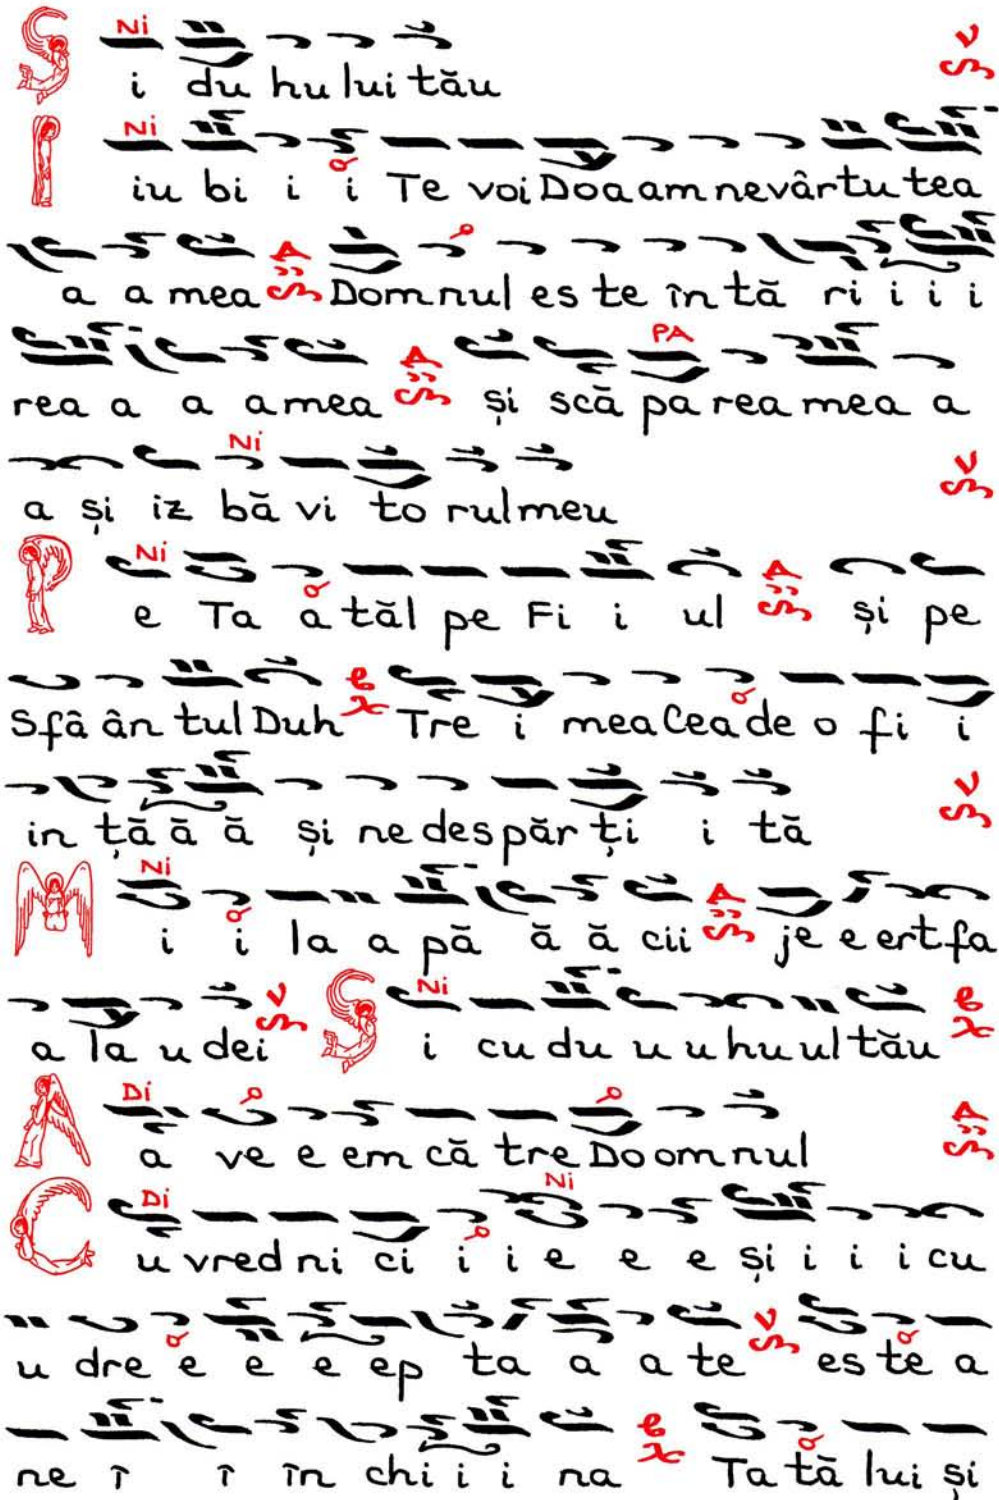 Ni
S i du hu lui tău
Ni
I iu bi i i Te voi Doa am ne vâr tu tea
a a mea Dom nul es te în tă ri i i i
PA
rea a a a mea și scă pa rea mea a
Ni
a și iz bă vi to rul meu
Ni
P e Ta a tăl pe Fi i ul și pe
Sfâ ân tul Duh Tre i mea Cea de o fi i
in ță ă ă și ne des păr ți i tă
Ni
M i i la a pă ă ă cii je e ert fa
Ni
a la u dei S i cu du u u hu ul tău
Di
A a ve e em că tre Do om nul
Di Ni
C u vred ni ci i i e e e și i i i cu
u dre e e e ep ta a a te es te a
ne î î în chi i i na Ta tă lui și